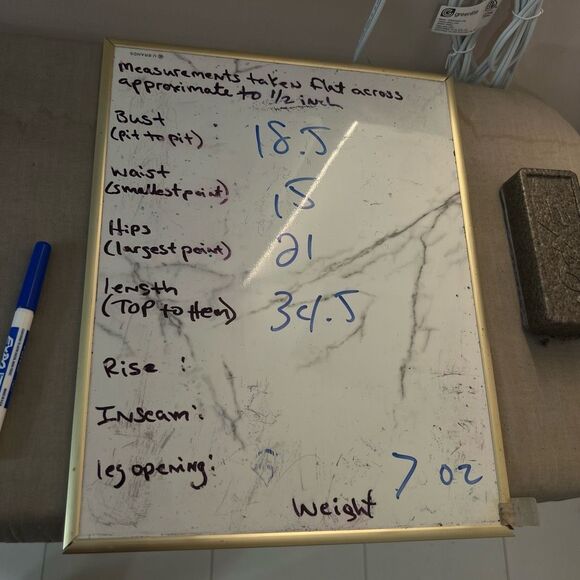 U BRANDS
greenlite
measurements taken flat across
approximate to 1/2 inch
Bust
(pit to pit) 18.5
waist
(smallest point) 15
Hips
(largest point) 21
length
(TOP to Hem) 34.5
Rise :
Inseam:
leg opening:
7 oz
Weight
EXPO